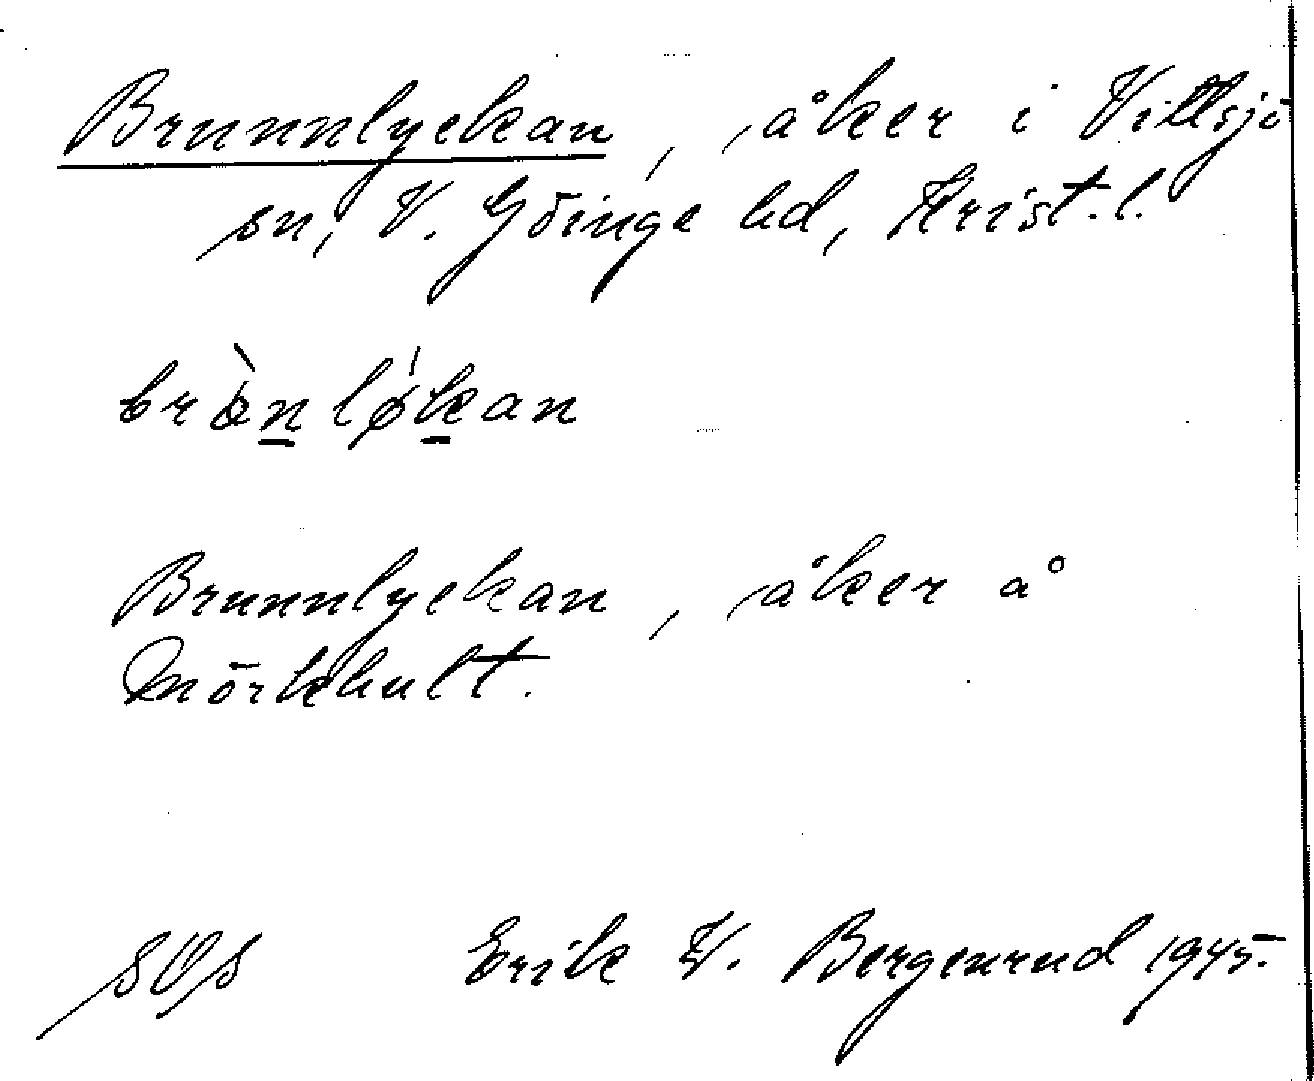 Brunnlyckan, åker i Vittsjö
sn, V. Göinge hd, Krist. l.
brànløkan
Brunnlyckan, åker å
Mörkhult.
Erik W. Bergenrud 1945.